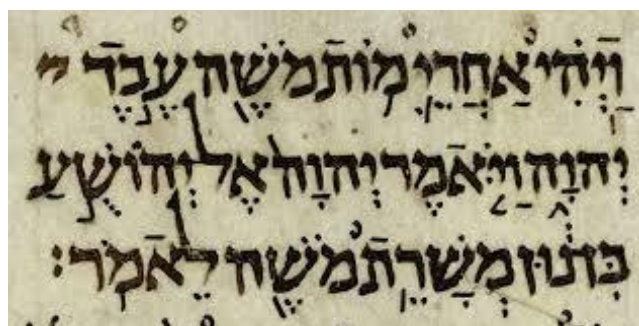 וַיְהִ֗י אַחֲרֵי֙ מ֣וֹת מֹשֶׁ֔ה עֶ֖בֶד
יְהוָ֑ה וַיֹּ֤אמֶר יְהוָה֙ אֶל יְהוֹשֻׁ֣עַ
בִּן נ֔וּן מְשָׁרֵ֥ת מֹשֶׁ֖ה לֵאמֹֽר׃